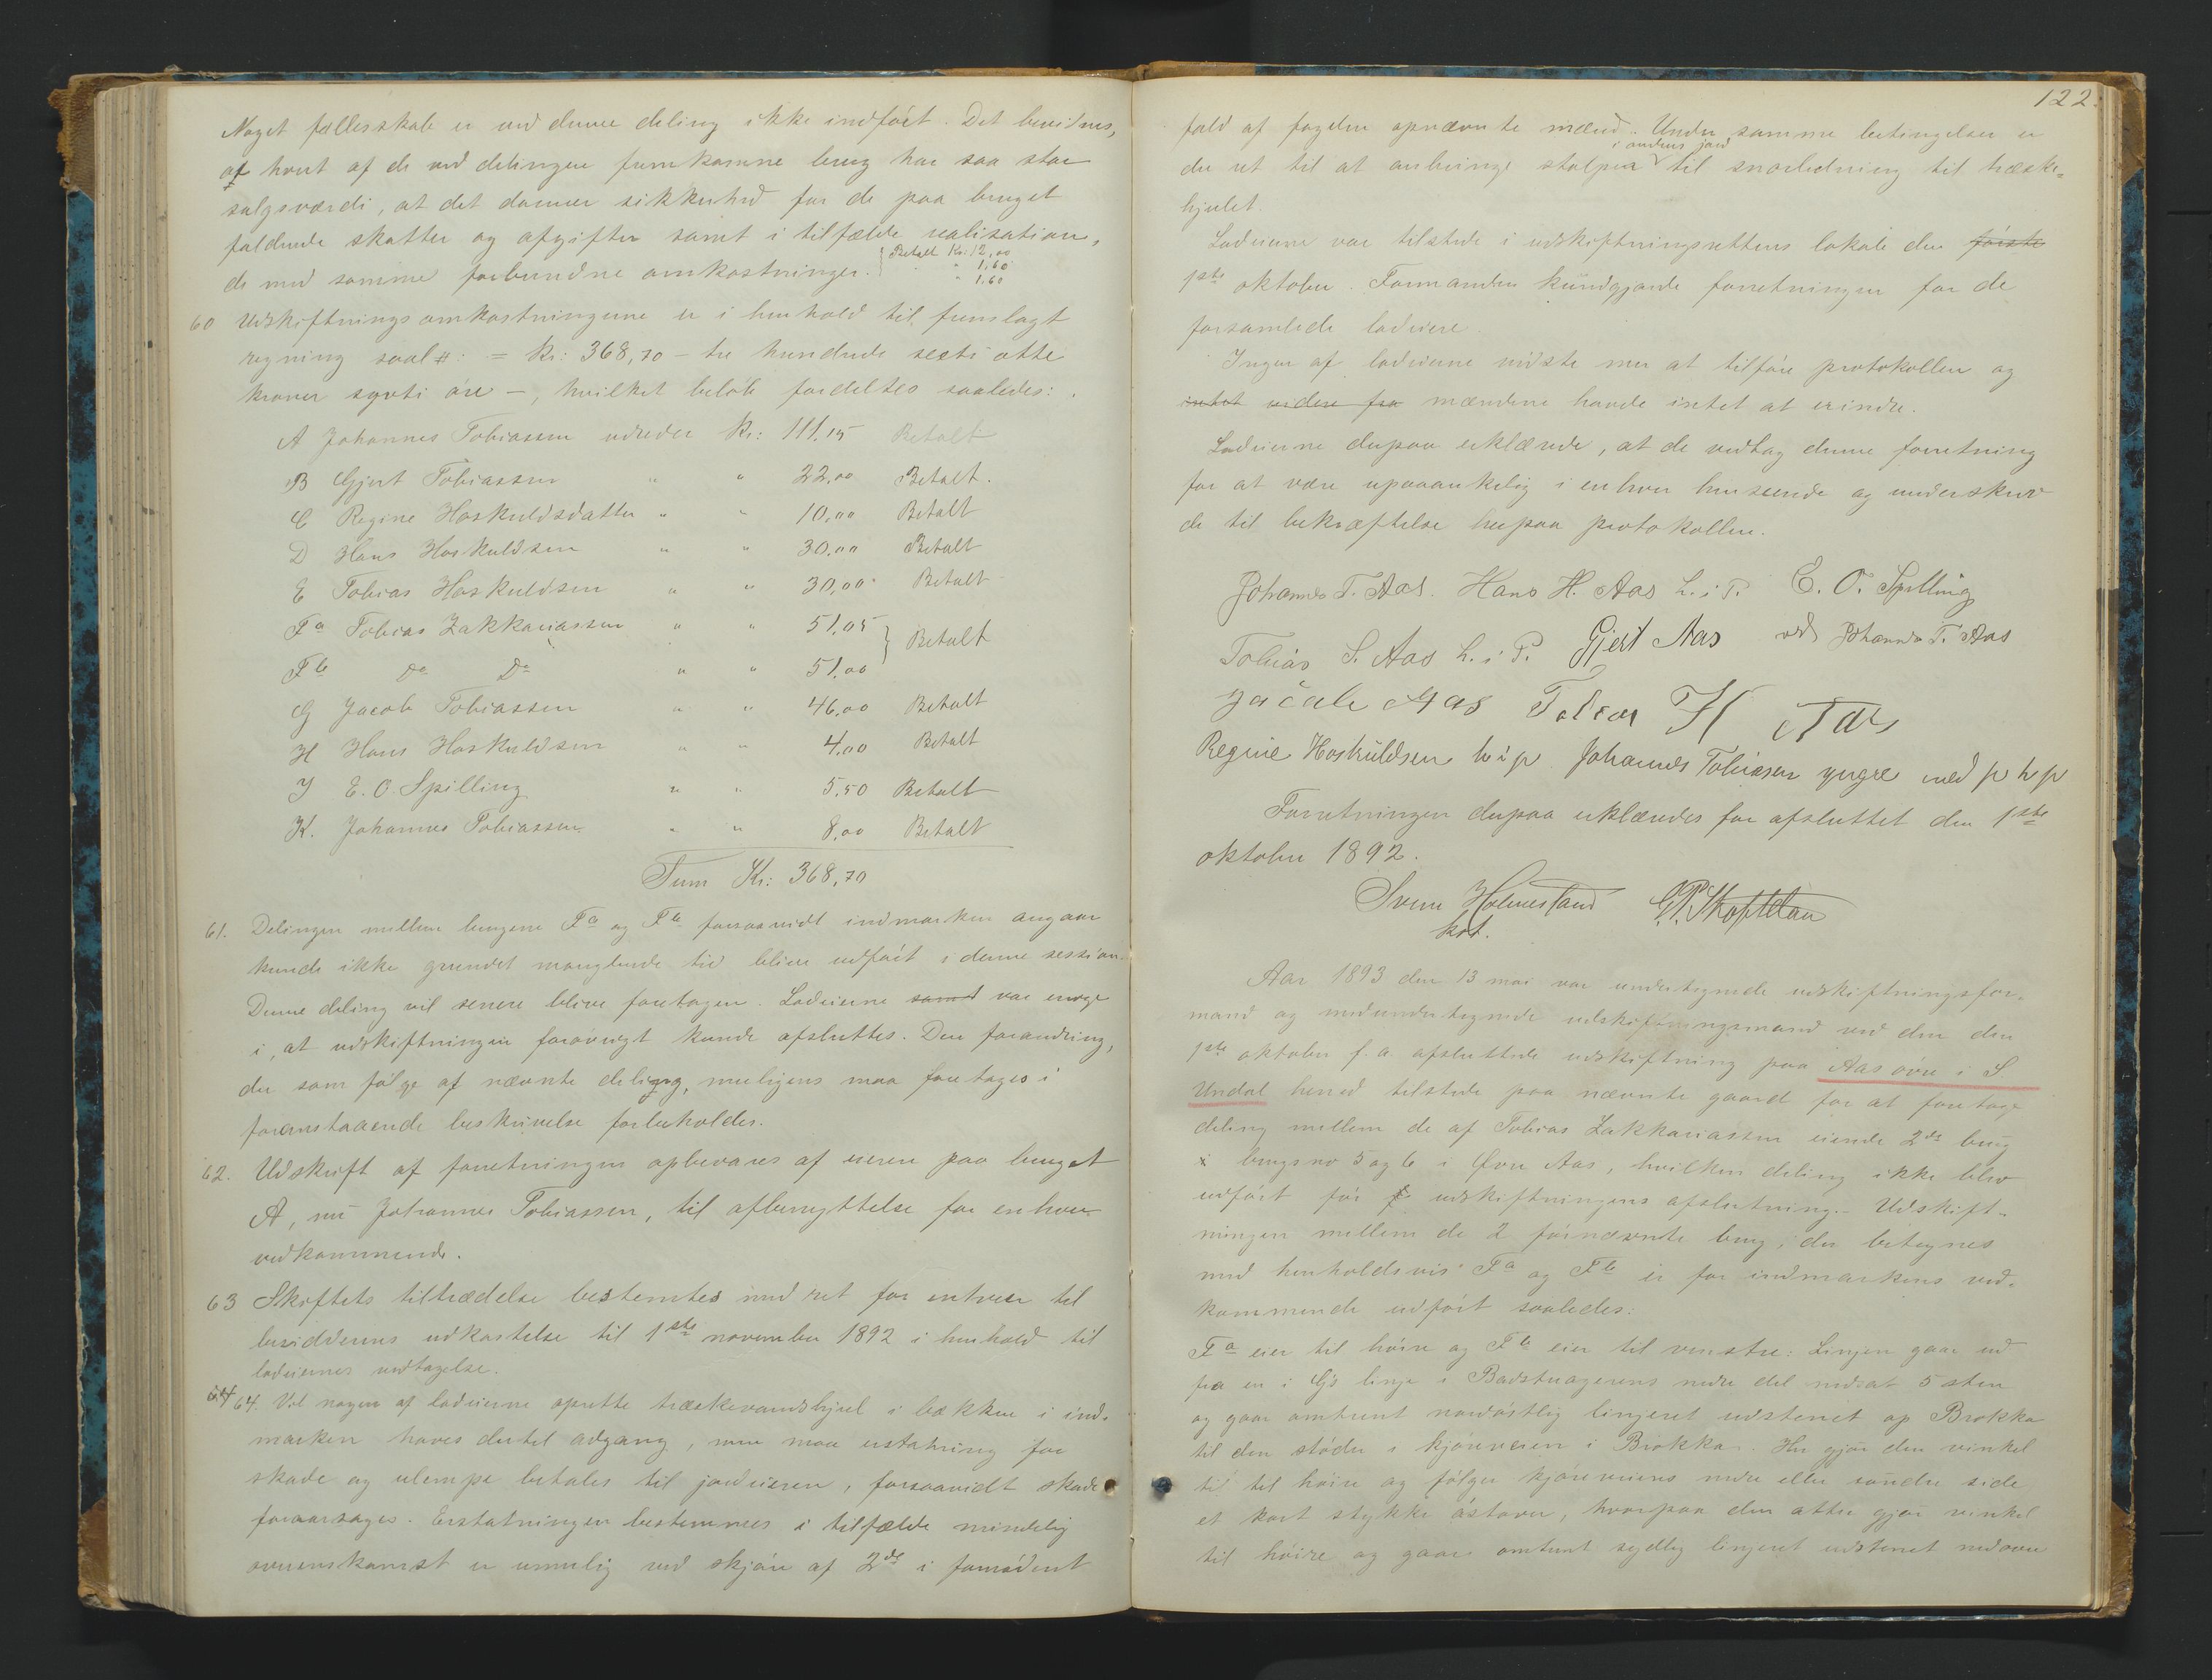 Noget fællesskab er ved denne deling ikke indført. Det bevidnes,
at hvert af de ved delingen fremkomne brug har saa stor
salgsværdi, at det danner sikkerhed for de paa bruget
faldende skatter og afgifter samt i tilfælde realisation,
de med samme forbundne omkostninger. { Betalt Kr: 12,00
" 1,60
" 1,60
60 Udskiftningsomkostningerne er i henhold til fremlagt
regning saal#: = Kr: 368,70 - tre hundrede seeti otte
kroner sytti øre -, hvilket beløb fordeltes saaledes:
A Johannes Tobiassen udreder Kr: 111,15 Betalt
B Gjert Tobiassen " " 22,00 Betalt.
C Regine Hoskuldsdatter " " 10,00 Betalt
D Hans Hoskuldsen " " 30,00 Betalt
E Tobias Hoskuldsen " " 30,00 Betalt
Fa Tobias Zakkariassen " " 51,05 } Betalt
Fb Do Do " " 51,00
G Jacob Tobiassen " " 46,00 Betalt
H Hans Hoskuldsen " " 4,00 Betalt
J E. O. Spilling " " 5,50 Betalt
K. Johannes Tobiassen " " 8,00 Betalt
Sum Kr: 368,70
61. Delingen mellem brugene Fa og Fb forsaavidt indmarken angaar
kunde ikke grundet manglende tid blive udført i denne session.
Denne deling vil senere blive foretagen. Lodeierne samt var enige
i, at udskiftningen forøvrigt kunde afsluttes. Den forandring,
der som følge af nævnte deling, muligens maa foretages i
foranstaaende beskrivelse forbeholdes.
62. Udskrift af forretningen opbevares af eieren paa bruget
A, nu Johannes Tobiassen, til afbenyttelse for enhver
vedkommende.
63 Skiftets tiltrædelse bestemtes med ret for enhver til
besidderens udkastelse til 1ste november 1892 i henhold til
lodeiernes vedtagelse.
64 64. Vil nogen af lodeierne oprette træskevandshjul i bækken i ind-
marken haves dertil adgang, men maa erstatning for
skade og ulempe betales til jordeieren, forsaavidt skade
foraarsages. Erstatningen bestemmes i tilfælde mindelig
overenskomst er umulig ved skjøn af 2de i fornødent
122.
fald af fogden opnævnte mænd. Under samme betingelser er
i andens jord
der ret til at anbringe stolper til snorledning til træske-
hjulet.
Lodeierne var tilstede i udskiftningsrettens lokale den første
1ste oktober. Formanden kundgjorde forretningen for de
forsamlede lodeiere.
Ingen af lodeierne vidste mer at tilføre protokollen og
intet videre fra mændene havde intet at erindre.
Lodeierne derpaa erklærede, at de vedtog denne forretning
for at være upaaankelig i enhver henseende og underskrev
de til bekræftelse herpaa protokollen.
Johannes T. Aas. Hans H. Aas h. i P. E. O. Spilling
Tobias S. Aas h. i P. Gjert Aas ved Johannes T. Aas
Jacob Aas Tobias H Aas
Regine Hoskuldsen h i p Johannes Tobiasen yngre med p h p
Forretningen derpaa erklæredes for afsluttet den 1ste
oktober 1892.
Sven Holmesland
kst.
Aar 1893 den 13 mai var undertegnede udskiftningsfor-
mand og medundertegnede udskiftningsmænd ved den den
1ste oktober f. a. afsluttede udskiftning paa Aas øvre i S.
Undal herved tilstede paa nævnte gaard for at foretage
deling mellem de af Tobias Zakkariassen eiende 2de brug
i brugsno 5 og 6 i Øvre Aas, hvilken deling ikke blev
udført før udskiftningens afslutning. Udskift-
ningen mellem de 2 førnævnte brug, der betegnes
med henholdsvis Fa og Fb er for indmarkens ved-
kommende udført saaledes:
Fa eier til høire og Fb eier til venstre: Linjen gaar ud
fra en i G's linje i Badstuagerens nedre del nedsat 5 sten
og gaar omtrent nordøstlig linjeret udstenet op Brokka
til den støder i kjøreveien i Brokka. Her gjør den vinkel
til til høire og følger kjøreveiens nedre eller søndre side
et kort stykke østover, hvorpaa den atter gjør vinkel
til høire og gaar omtrent sydlig linjeret udstenet nedover